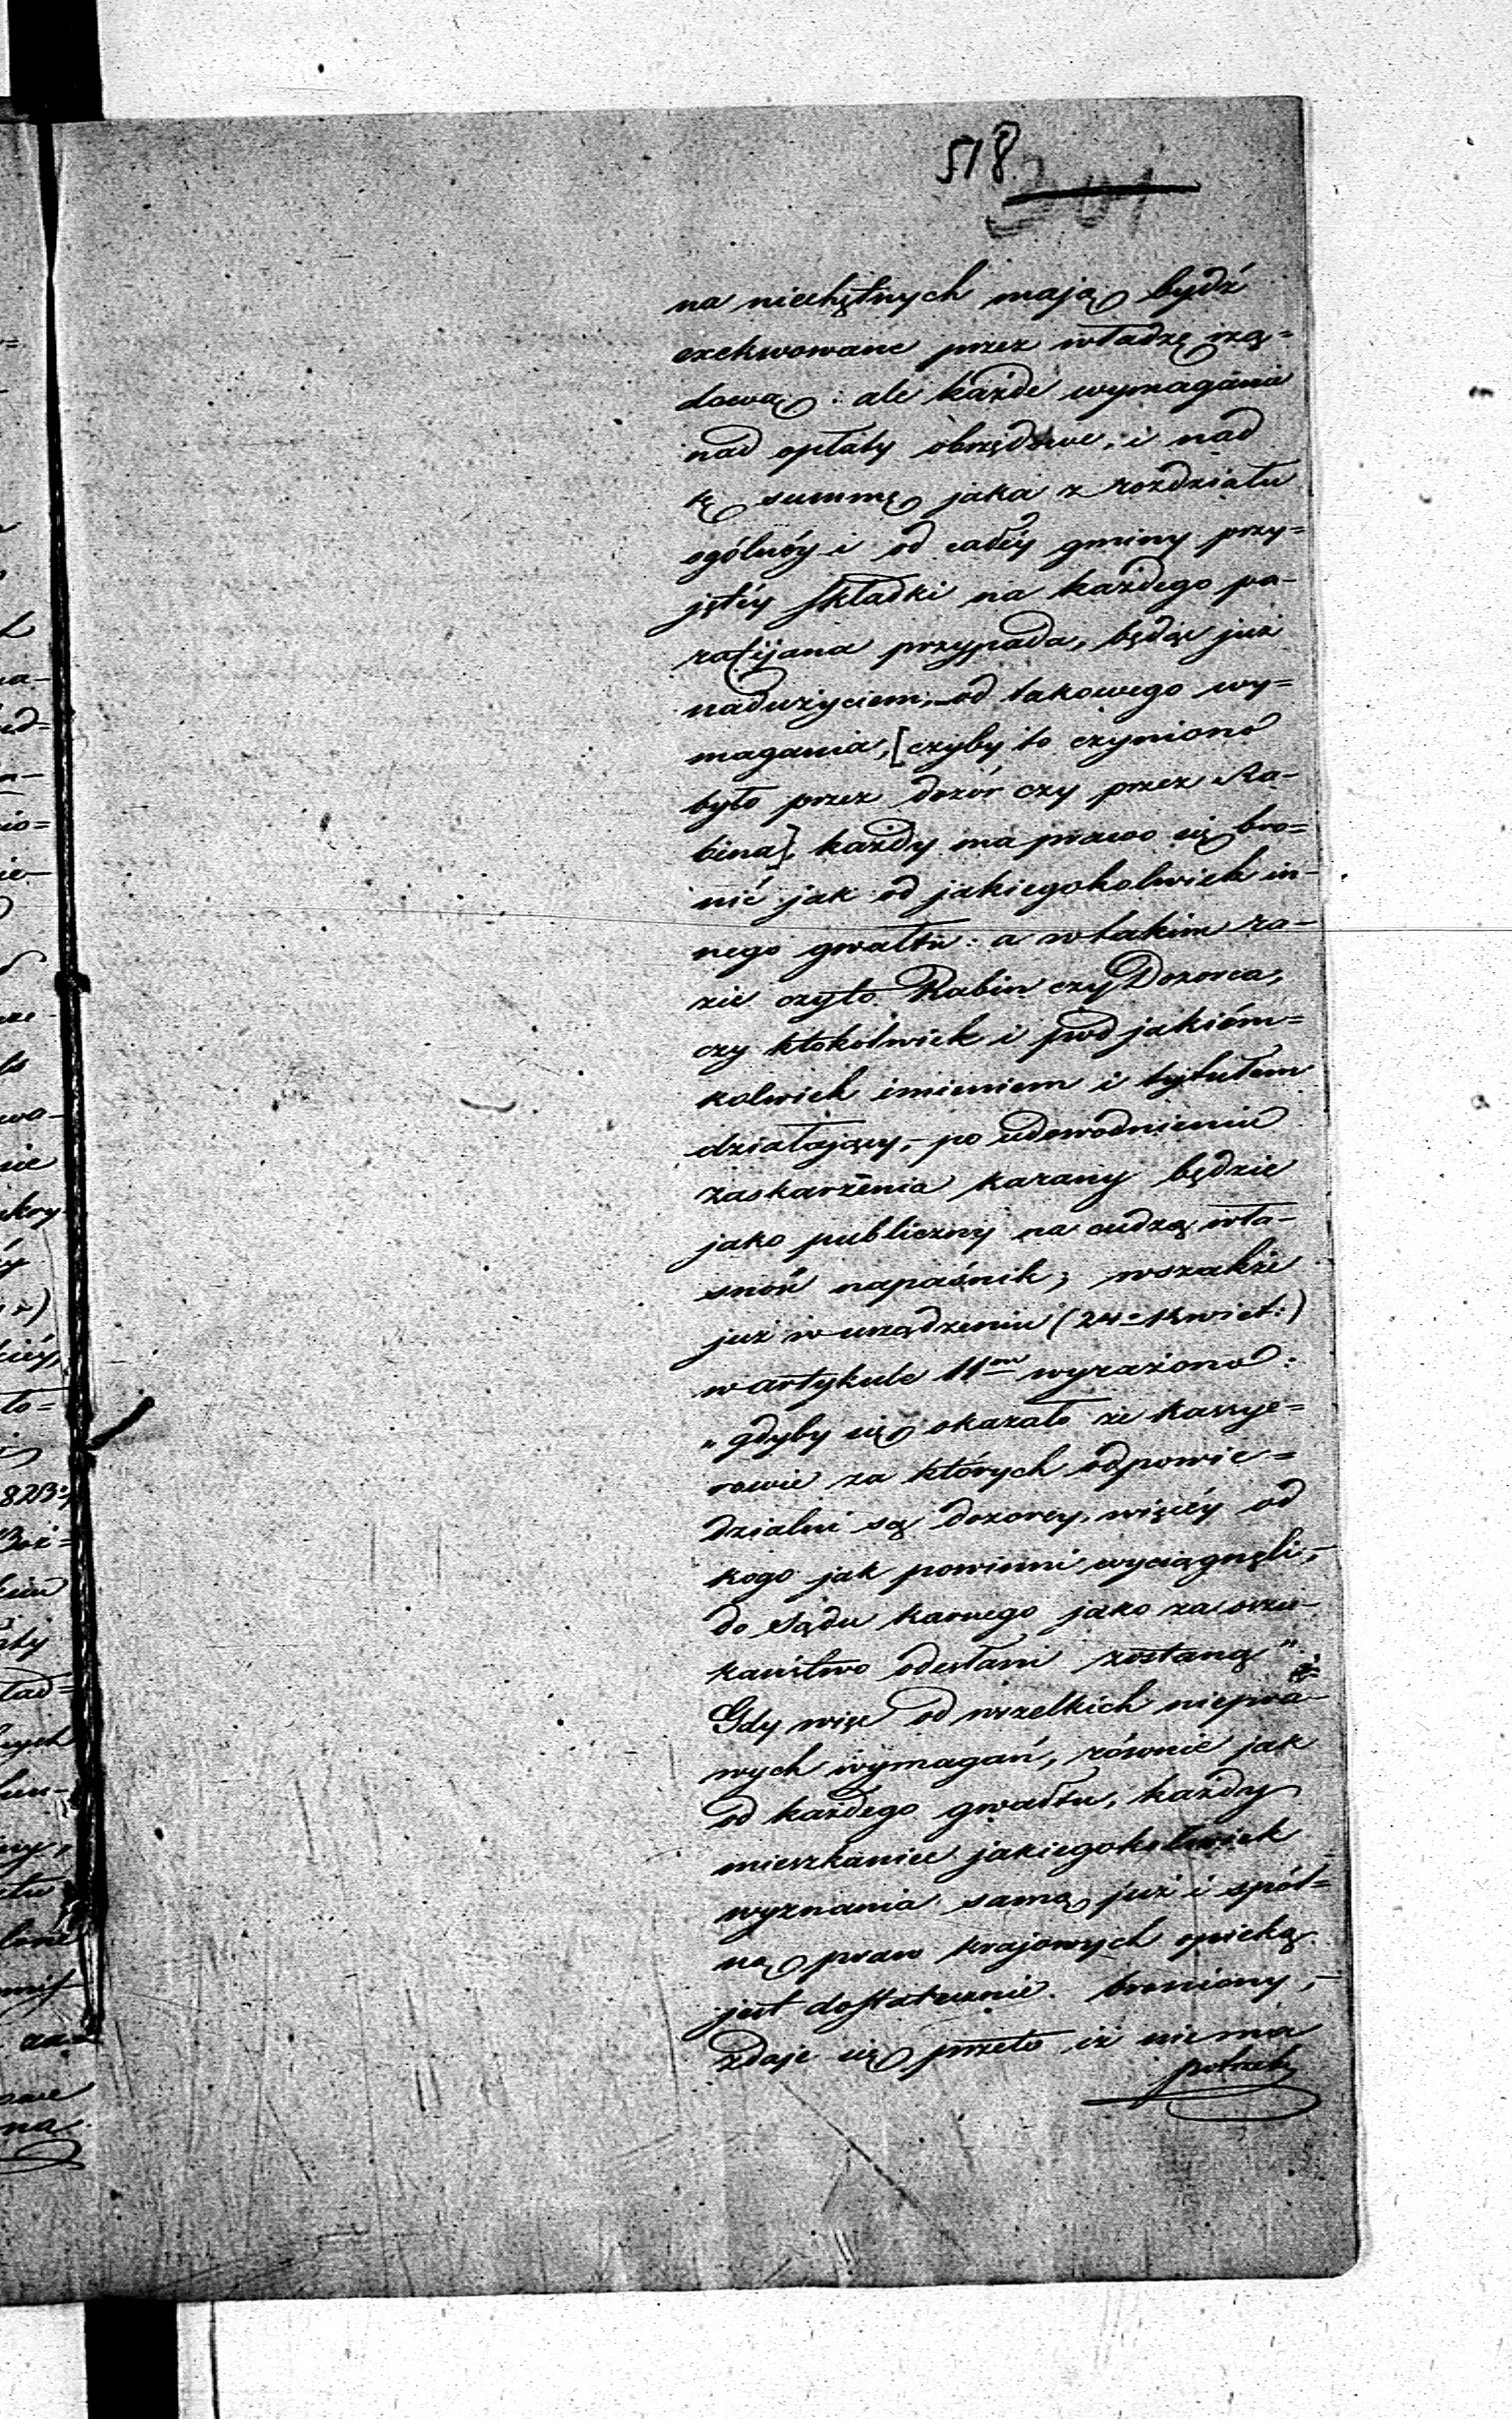 518.
na niechętnych mają bydź
exekwowane przez władzę rzą=
dową: ale każde wymaganie
nad opłaty obrzędowe, i nad
tę summę jaka z rozdziału
ogólnéy i od całéy gminy przy=
jętéy składki na każdego pa-
rafijana przypada, będąc już
nadużyciem, od takowego wy=
magania, [czyby to czyniono
było przez dozór czy przez Ra-
bina], każdy ma prawo się bro=
nić jak od jakiegokolwiek in-
nego gwałtu: a w takim ra-
zie czyto Rabin czy Dozorca,
czy ktokolwiek i pod jakiém=
kolwiek imieniem i tytułem
działający, – po udowodnieniu
zaskarżenia karany będzie
jako publiczny na cudzą wła-
sność napaśnik; wszakże
już w urządzeniu (24 Kwiet:)
w artykule 11m wyrażono:
„gdyby się okazało że kassye=
rowie za których odpowie=
dzialni są dozorcy, więcéy od
kogo jak powinni wyciągnęli, –
do sądu karnego jako za oszu-
kaństwo odesłani zostaną”
Gdy więc od wszelkich niepra-
wych wymagań, równie jak
od każdego gwałtu, każdy
mieszkaniec jakiegokolwiek
wyznania samą już i spól=
ną praw krajowych opieką
jest dostatecznie broniony, –
zdaje się przeto iż nie ma
potrzeby